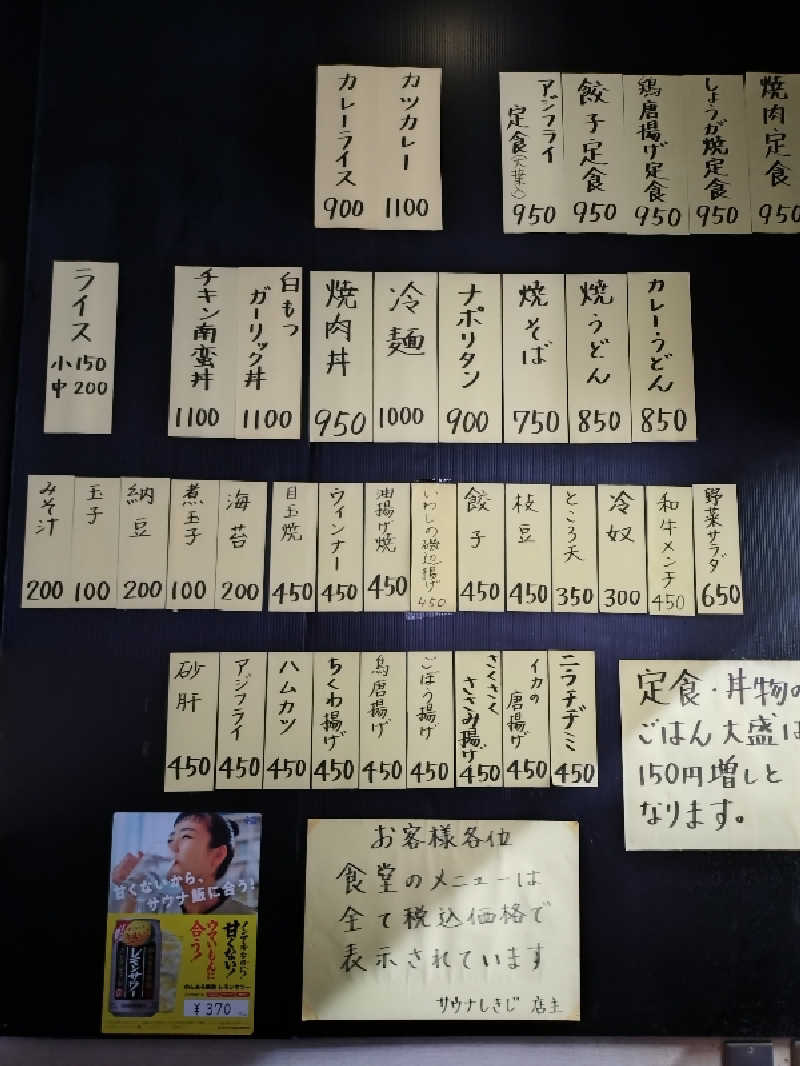 焼肉定食 950
しょうが焼定食 950
鶏唐揚げ定食 950
餃子定食 950
アジフライ
定食 950
カツカレー 1100
カレーライス 900
カレーうどん 850
焼うどん 850
焼そば 750
ナポリタン 900
冷麺 1000
焼肉丼 950
白もつ
ガーリック丼 1100
チキン南蛮丼 1100
ライス
小150
中200
野菜サラダ 650
和牛メンチ 450
冷奴 300
ところ天 350
枝豆 450
餃子 450
いわしの磯辺揚げ 450
油揚げ焼 450
ウィンナー 450
目玉焼 450
海苔 200
煮玉子 100
納豆 200
玉子 100
みそ汁 200
ニラチヂミ 450
イカの
唐揚げ 450
さくさく
ささみ揚げ 450
ごぼう揚げ 450
鳥唐揚げ 450
ちくわ揚げ 450
ハムカツ 450
アジフライ 450
砂肝 450
定食・丼物の
ごはん大盛は
150円増しと
なります。
お客様各位
食堂のメニューは
全て税込価格で
表示されています
サウナしきじ 店主
甘くないから、
サウナ飯に合う!
甘くない!
合う!
レモンサワー
¥370